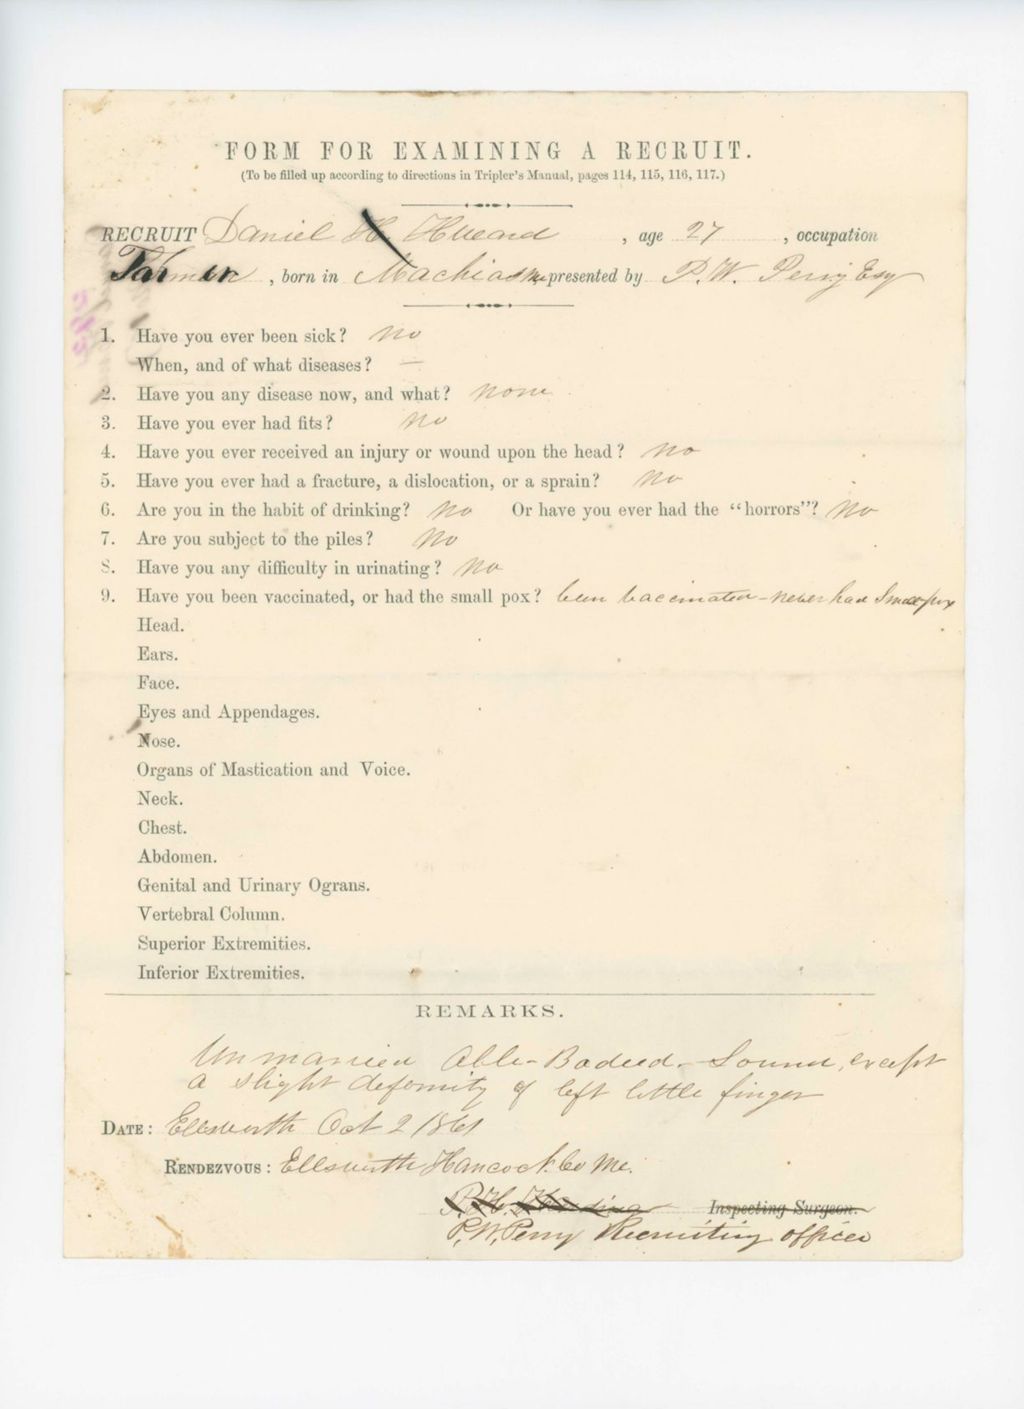 FORM FOR EXAMINING A RECRUIT.
(To be filled up according to directions in Tripler's Manual, pages 114, 115, 116, 117.)
RECRUIT Daniel H. , age 27 , occupation
, born in Machias Me presented by P. W. Perry Esq
1. Have you ever been sick? no
When, and of what diseases? —
2. Have you any disease now, and what? none
3. Have you ever had fits? No
4. Have you ever received an injury or wound upon the head? No
5. Have you ever had a fracture, a dislocation, or a sprain? No
6. Are you in the habit of drinking? No Or have you ever had the "horrors"? No
7. Are you subject to the piles? No
8. Have you any difficulty in urinating? No
9. Have you been vaccinated, or had the small pox? been vaccinated - never had Small pox
Head.
Ears.
Face.
Eyes and Appendages.
Nose.
Organs of Mastication and Voice.
Neck.
Chest.
Abdomen.
Genital and Urinary Ograns.
Vertebral Column.
Superior Extremities.
Inferior Extremities.
REMARKS.
Unmarried Able-Bodied - Sound, except
a slight deformity of left little finger
DATE: Ellsworth Oct 2 1861
RENDEZVOUS: Ellsworth Hancock Co Me.
Inspecting Surgeon.
P. W. Perry Recruiting officer